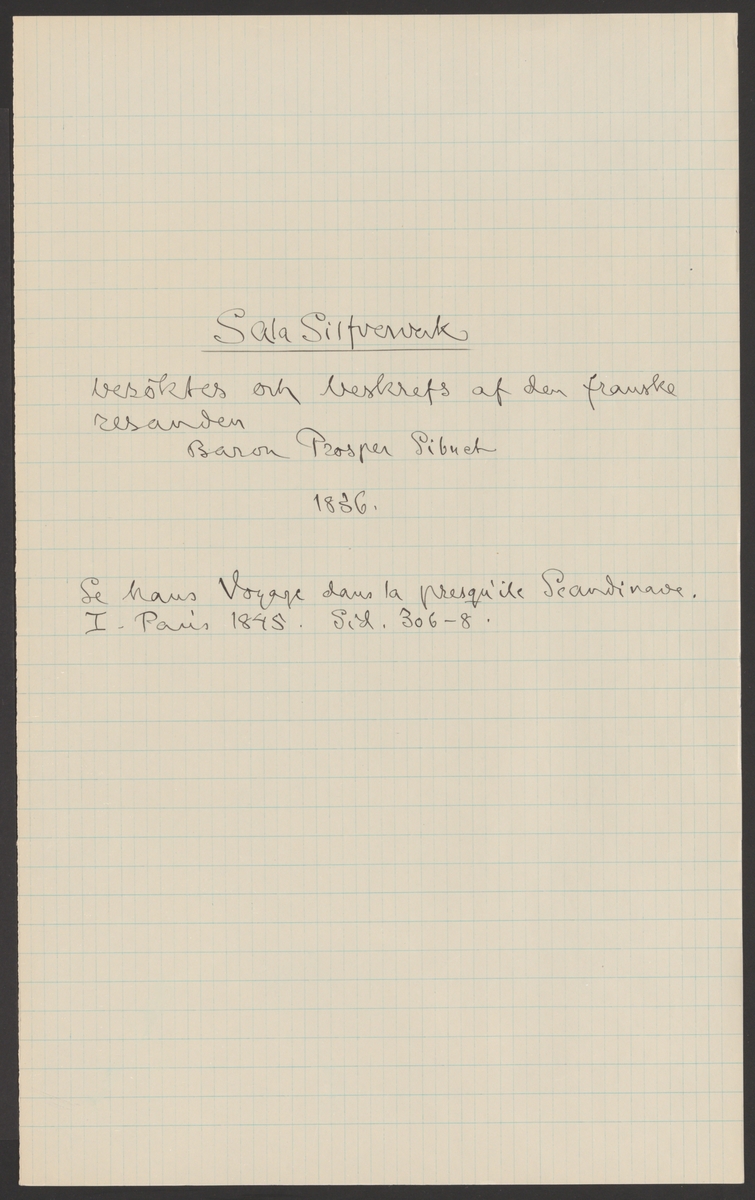 Sala Silfververk
besöktes och beskrefs af den franske
resanden
Baron Prosper Sibuet
1836.
Se hans Voyage dans la presqu'ile Scandinave.
I. Paris 1845. Sid. 306-8.